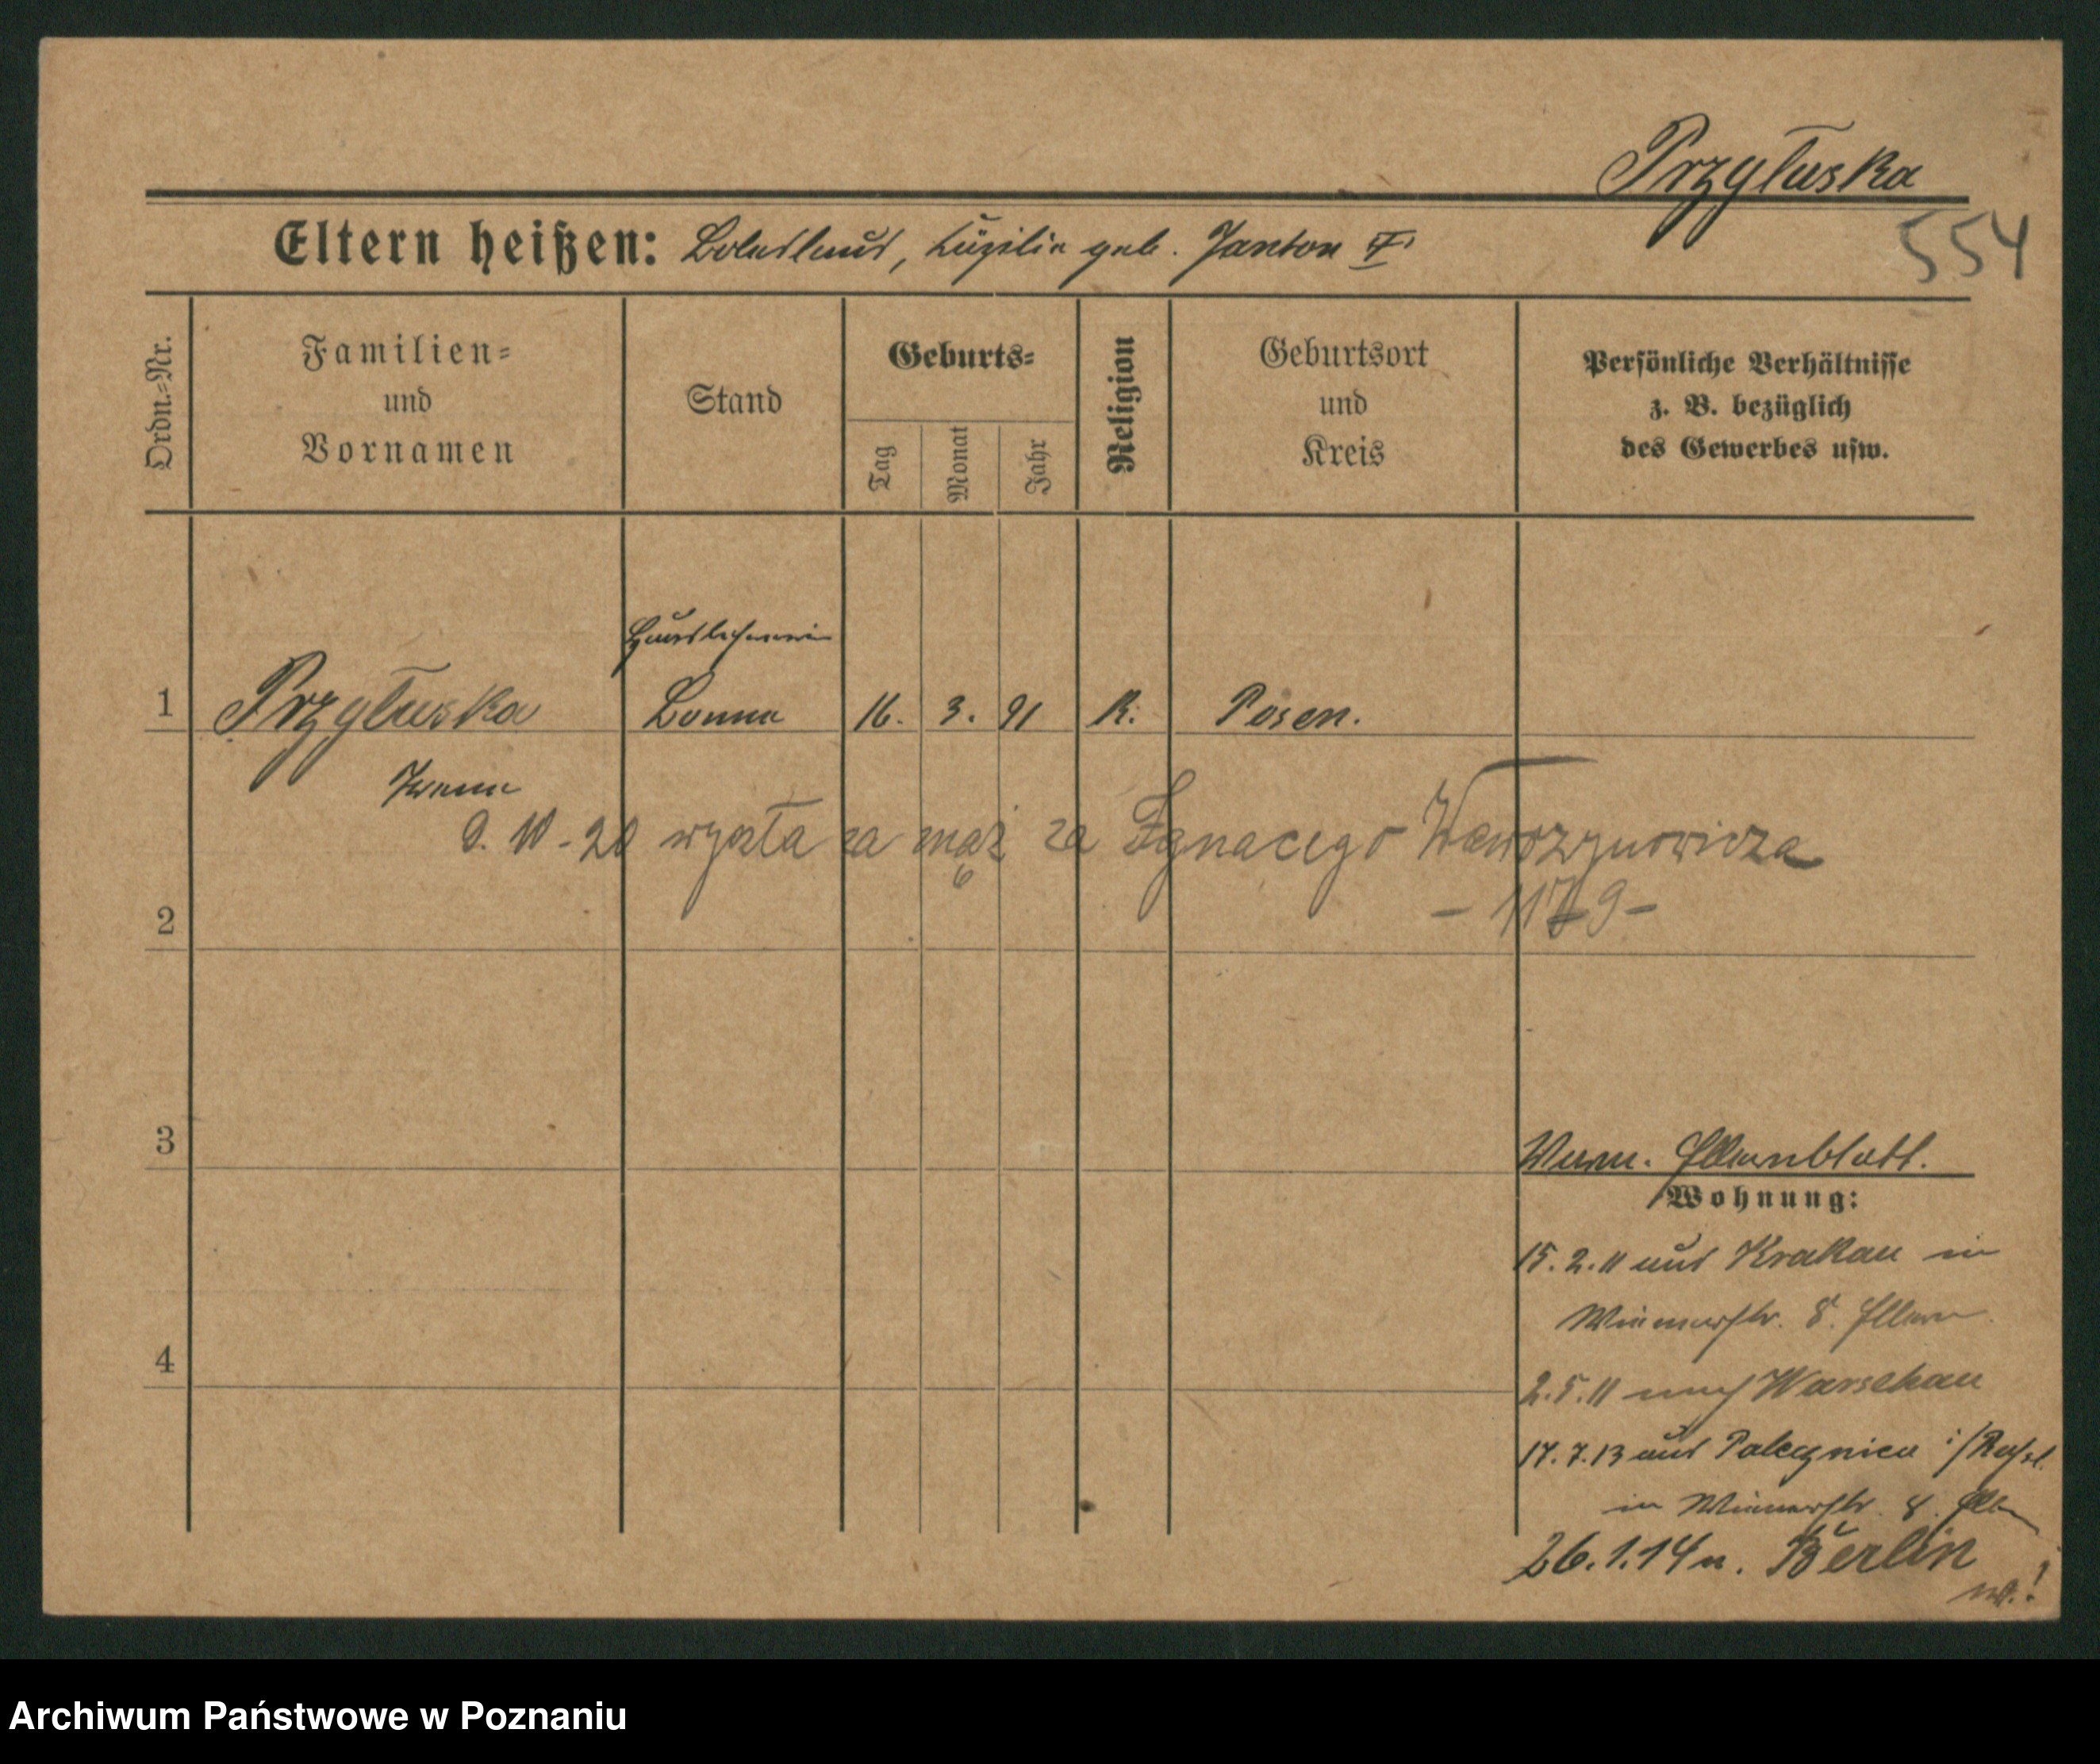 Przyłuska
554
Eltern heißen: Boleslaus, Cäzilia geb. Janton
Ordn.=Nr.
Familien=
und
Vornamen
Stand
Geburts=
Tag
Monat
Jahr
Religion
Geburtsort
und
Kreis
Persönliche Verhältnisse
z. B. bezüglich
des Gewerbes usw.
Hauslehrerin
1 Przyłuska Bonne 16. 3. 91 K. Posen.
Irene
9. 10-20 wyszła za mąż za Ignacego Wawrzynowicza
2
3
Elternblatt.
Wohnung:
15.2.11 aus Krakau in
8. Eltern
4
2.5.11 nach Warschau
17.7.13 aus i/
in 8. Elt
26.1.14 n. Berlin
Archiwum Państwowe w Poznaniu